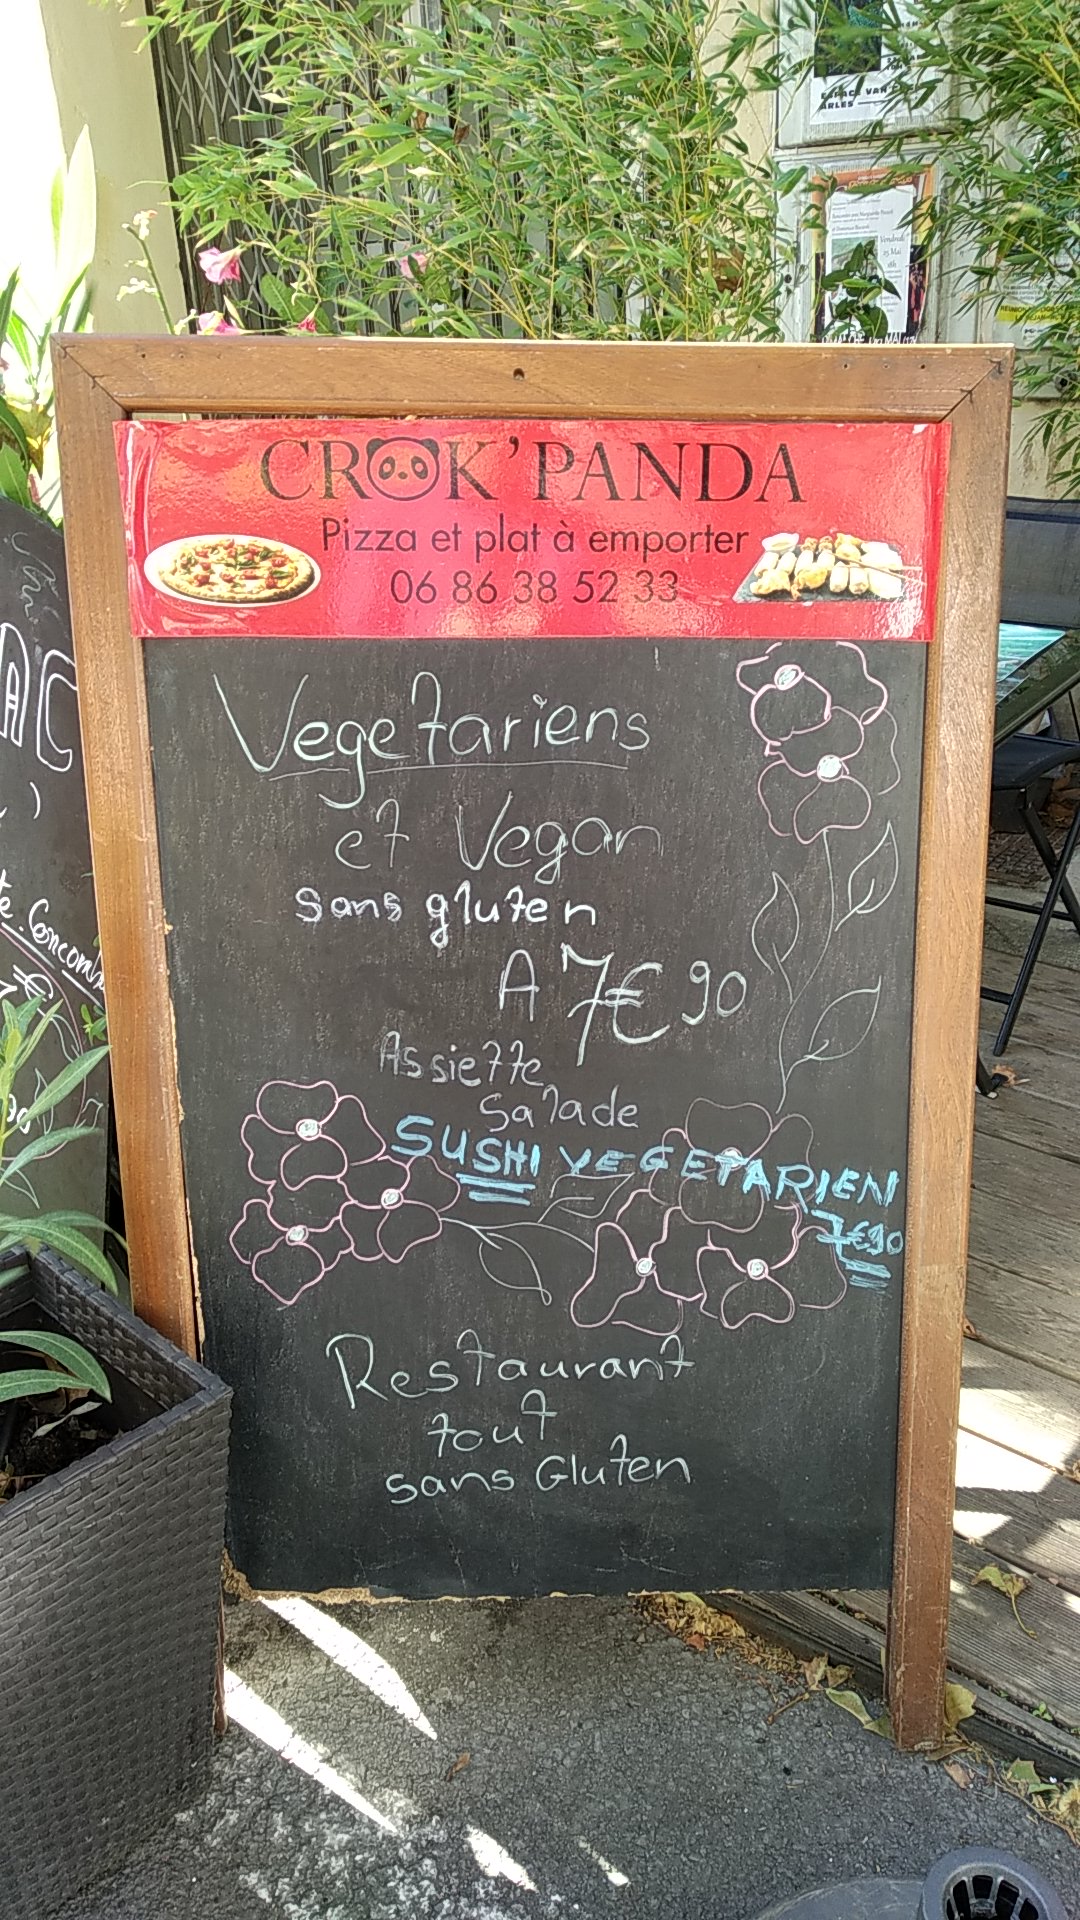 ESPACE VAN
ARLES
Vendredi
25 Mai
18h
CROK'PANDA
Pizza et plat à emporter
06 86 38 52 33
Vegetariens
et Vegan
sans gluten
A 7€90
Assiette
Salade
SUSHI VEGETARIEN
7€90
Restaurant
tout
sans Gluten
AC